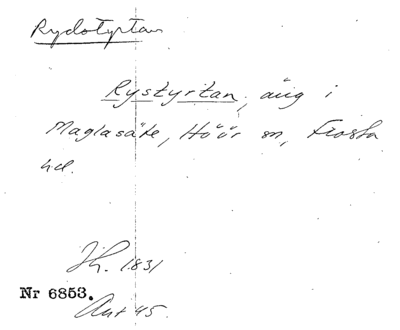 Rydotyrtan
Rystyrtan, äng i
Maglasäte, Höör sn, Frosta
hd.
Jh. 1831
Nr 6853.
Ant 45.